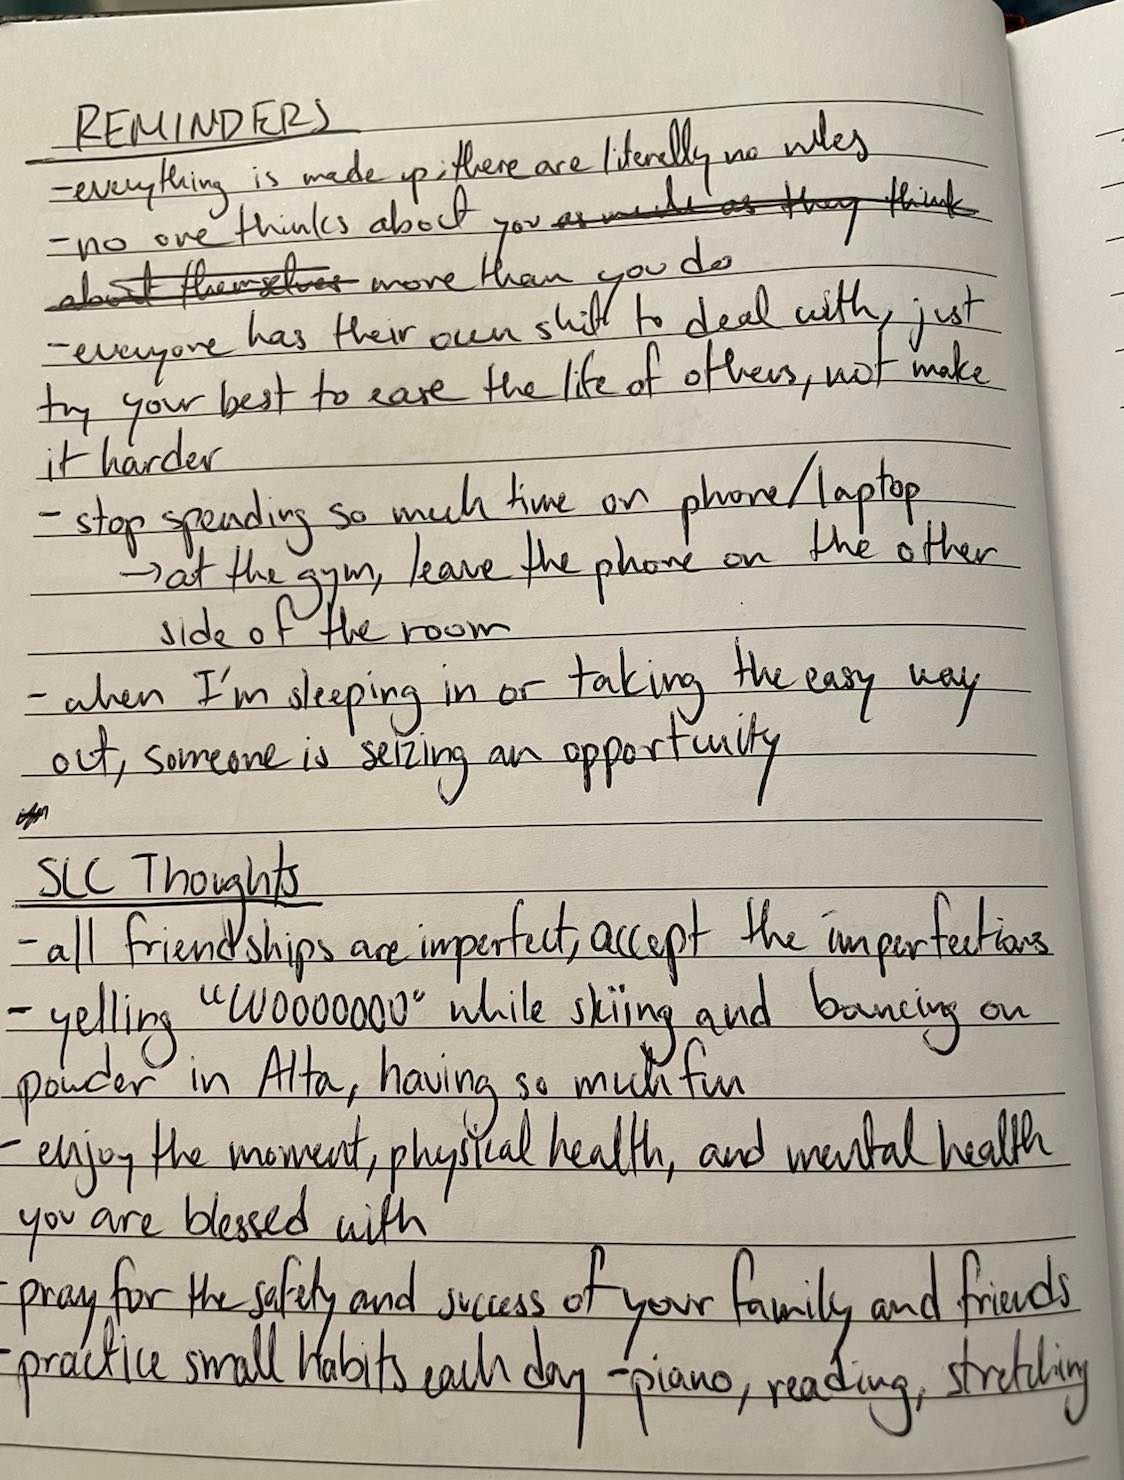 REMINDERS
- everything is made up; there are literally no rules
- no one thinks about you as much as they think
about themselves more than you do
- everyone has their own shit to deal with, just
try your best to ease the life of others, not make
it harder
- stop spending so much time on phone/laptop
→ at the gym, leave the phone on the other
side of the room
- when I'm sleeping in or taking the easy way
out, someone is seizing an opportunity
SLC Thoughts
- all friendships are imperfect, accept the imperfections
- yelling "WOOOOOOO" while skiing and bouncing on
powder in Alta, having so much fun
- enjoy the moment, physical health, and mental health
you are blessed with
- pray for the safety and success of your family and friends
- practice small habits each day - piano, reading, stretching